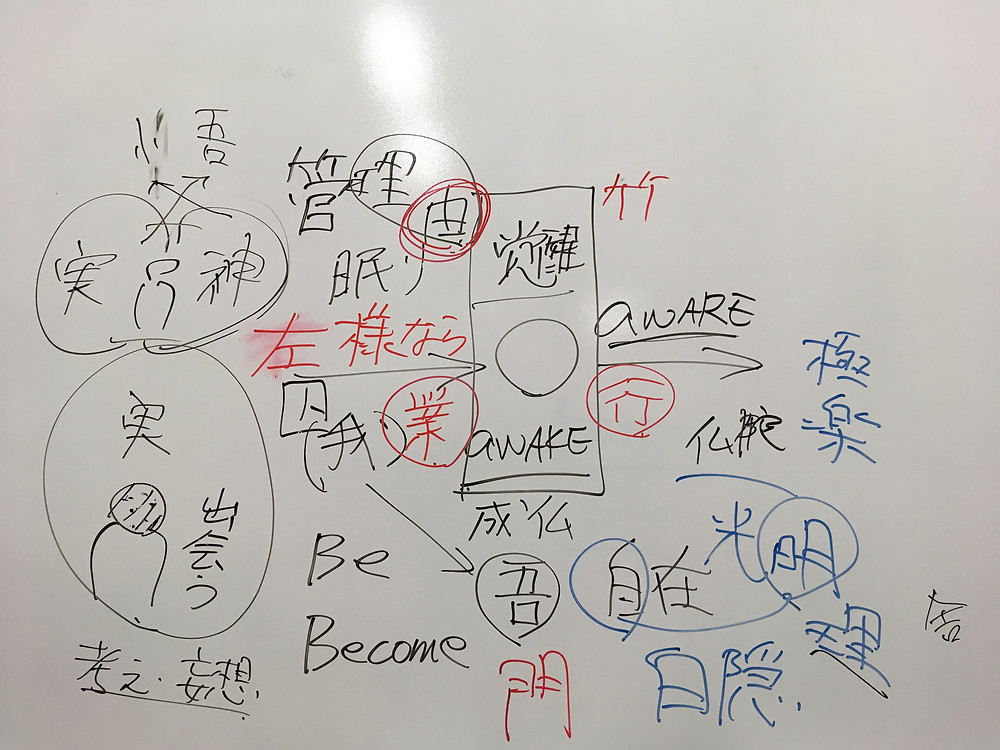 忄吾
実
神
実
出会う
考え・妄想
管理
由
眠り
左様なら
囚
(我)
業
Be
Become
覚醒
AWAKE
成仏
吾
門
竹
AWARE
行
仏陀
極楽
光明
自在
理
白隠